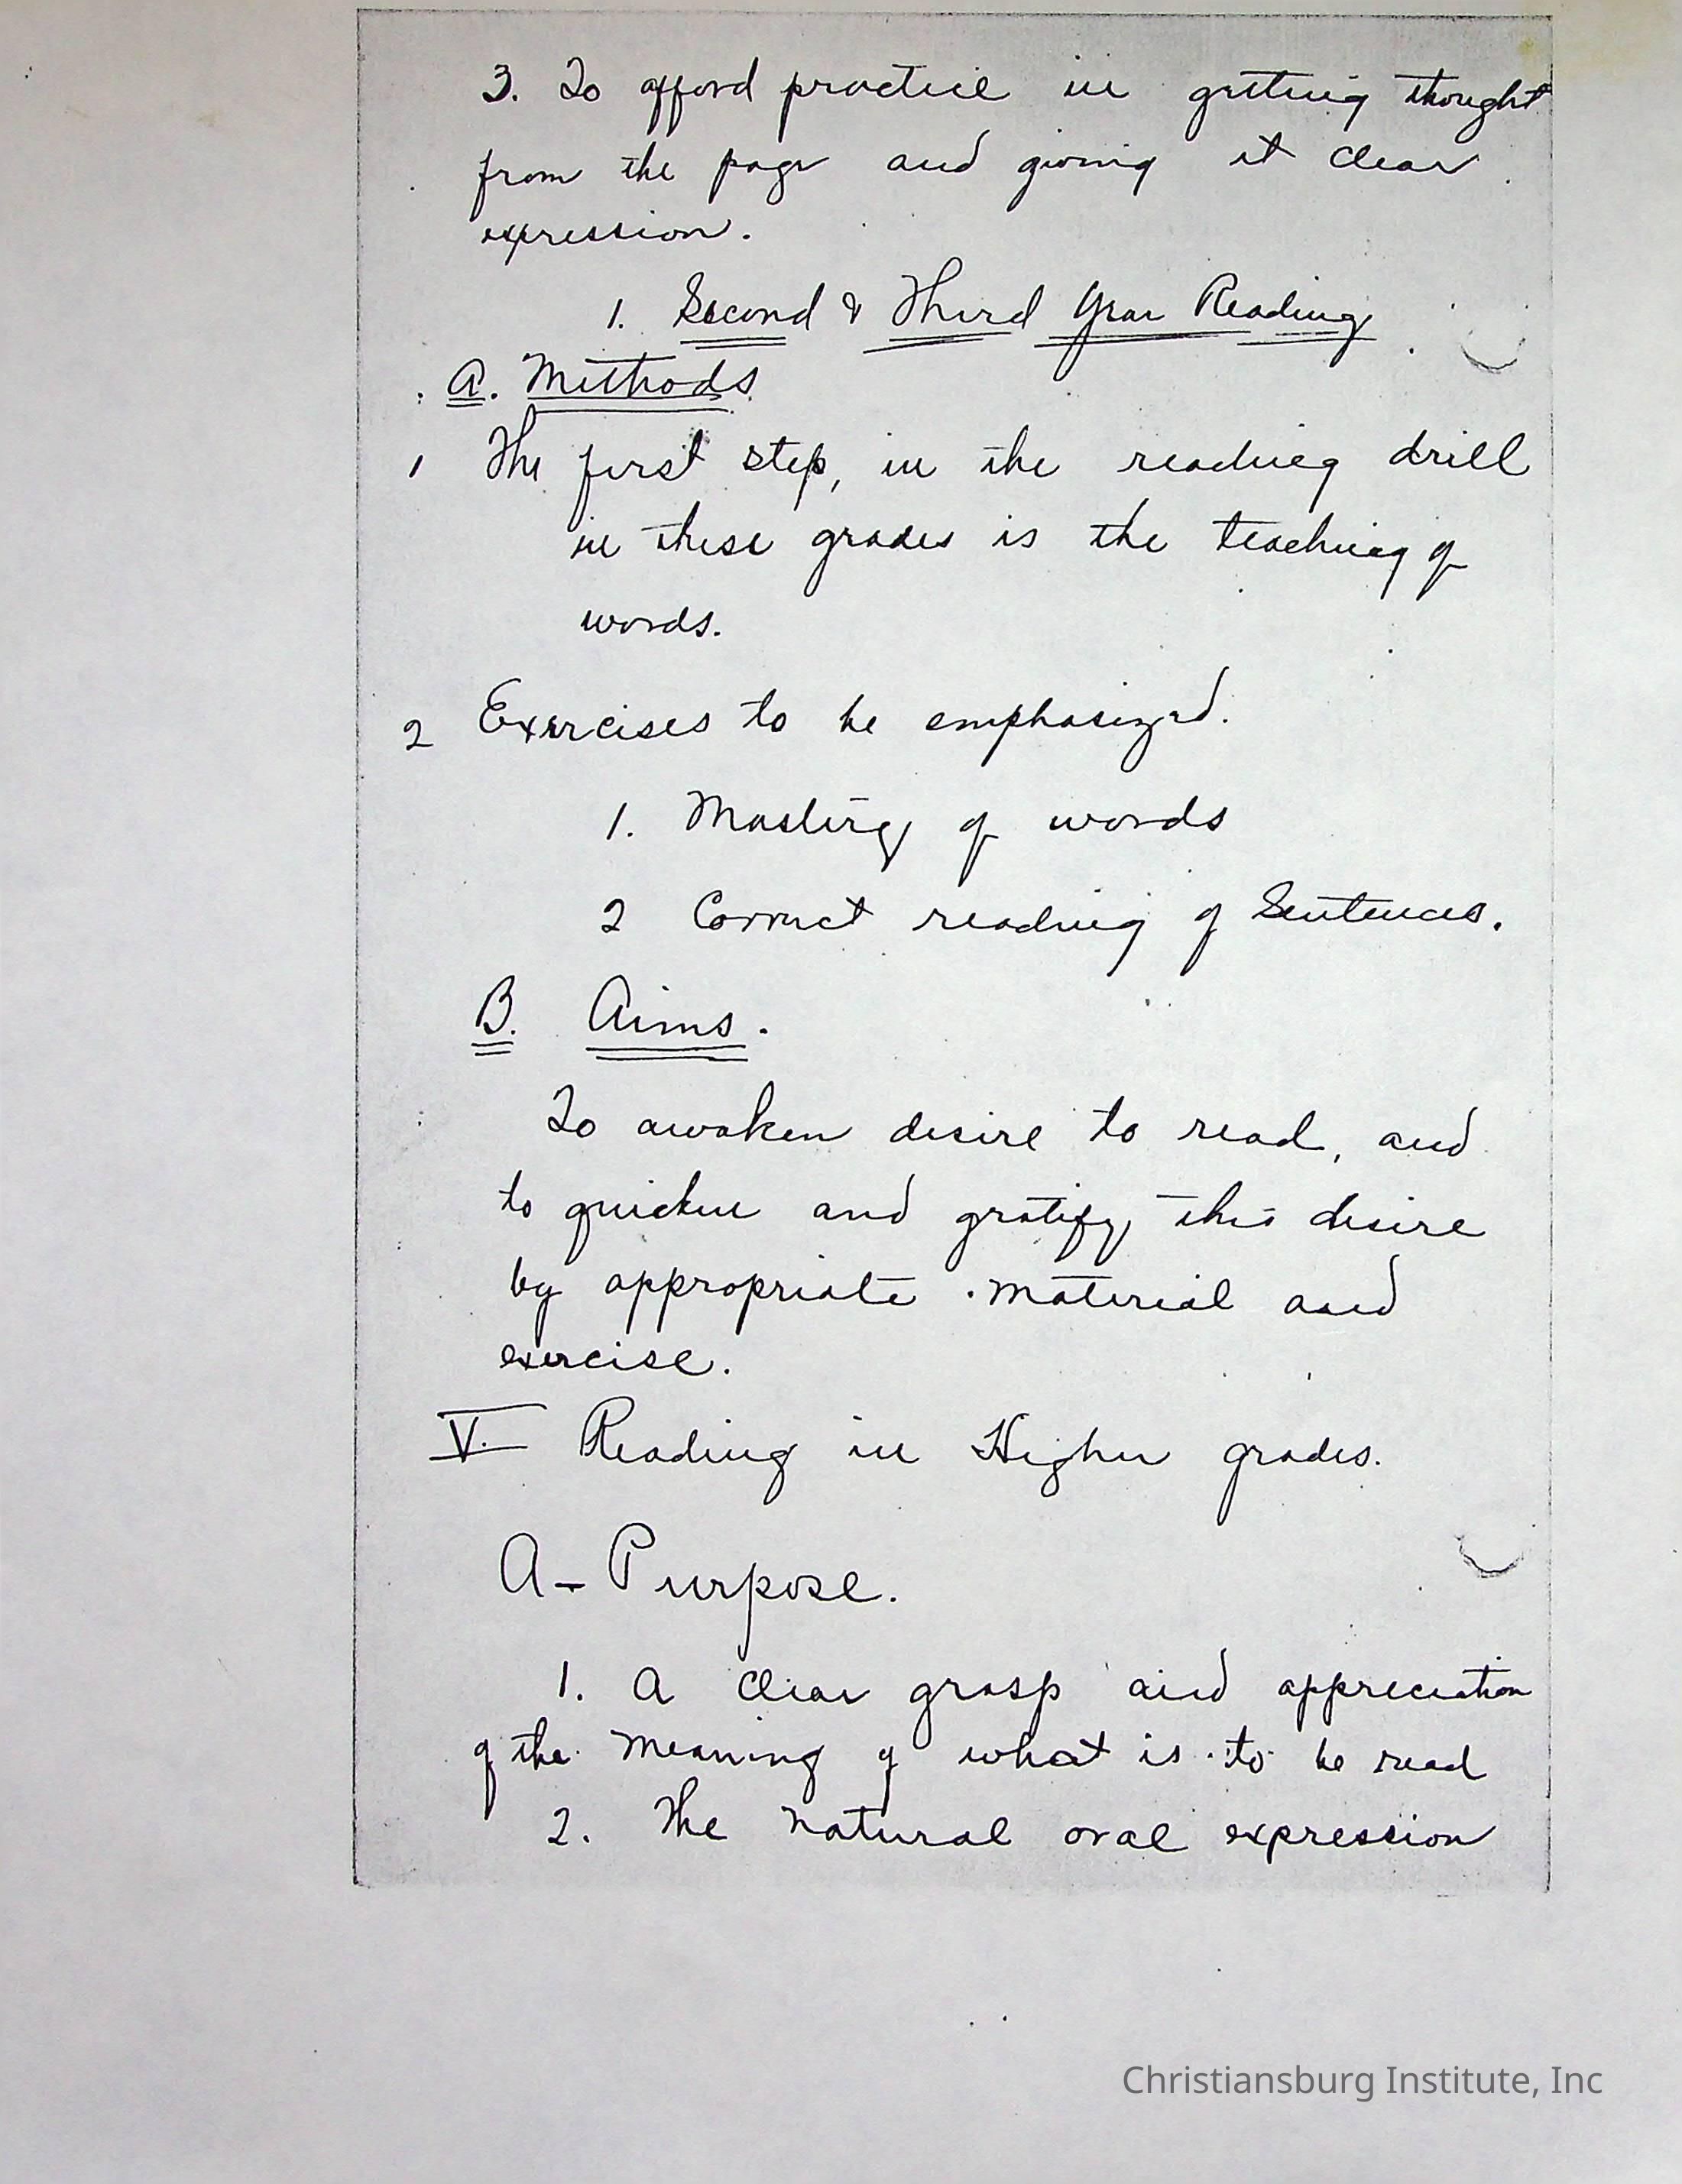 3. To afford practice in getting thought
from the page and giving it clear
expression.
1. Second & Third Year Reading
A. Methods
1 The first step, in the reading drill
in these grades is the teaching of
words.
2 Exercises to be emphasized.
1. Mastery of words
2 Correct reading of Sentences.
B. Aims.
To awaken desire to read, and
to quicken and gratify this desire
by appropriate material and
exercise.
V. Reading in Higher grades.
A - Purpose.
1. A clear grasp and appreciation
of the meaning of what is to be read
2. The natural oral expression
Christiansburg Institute, Inc